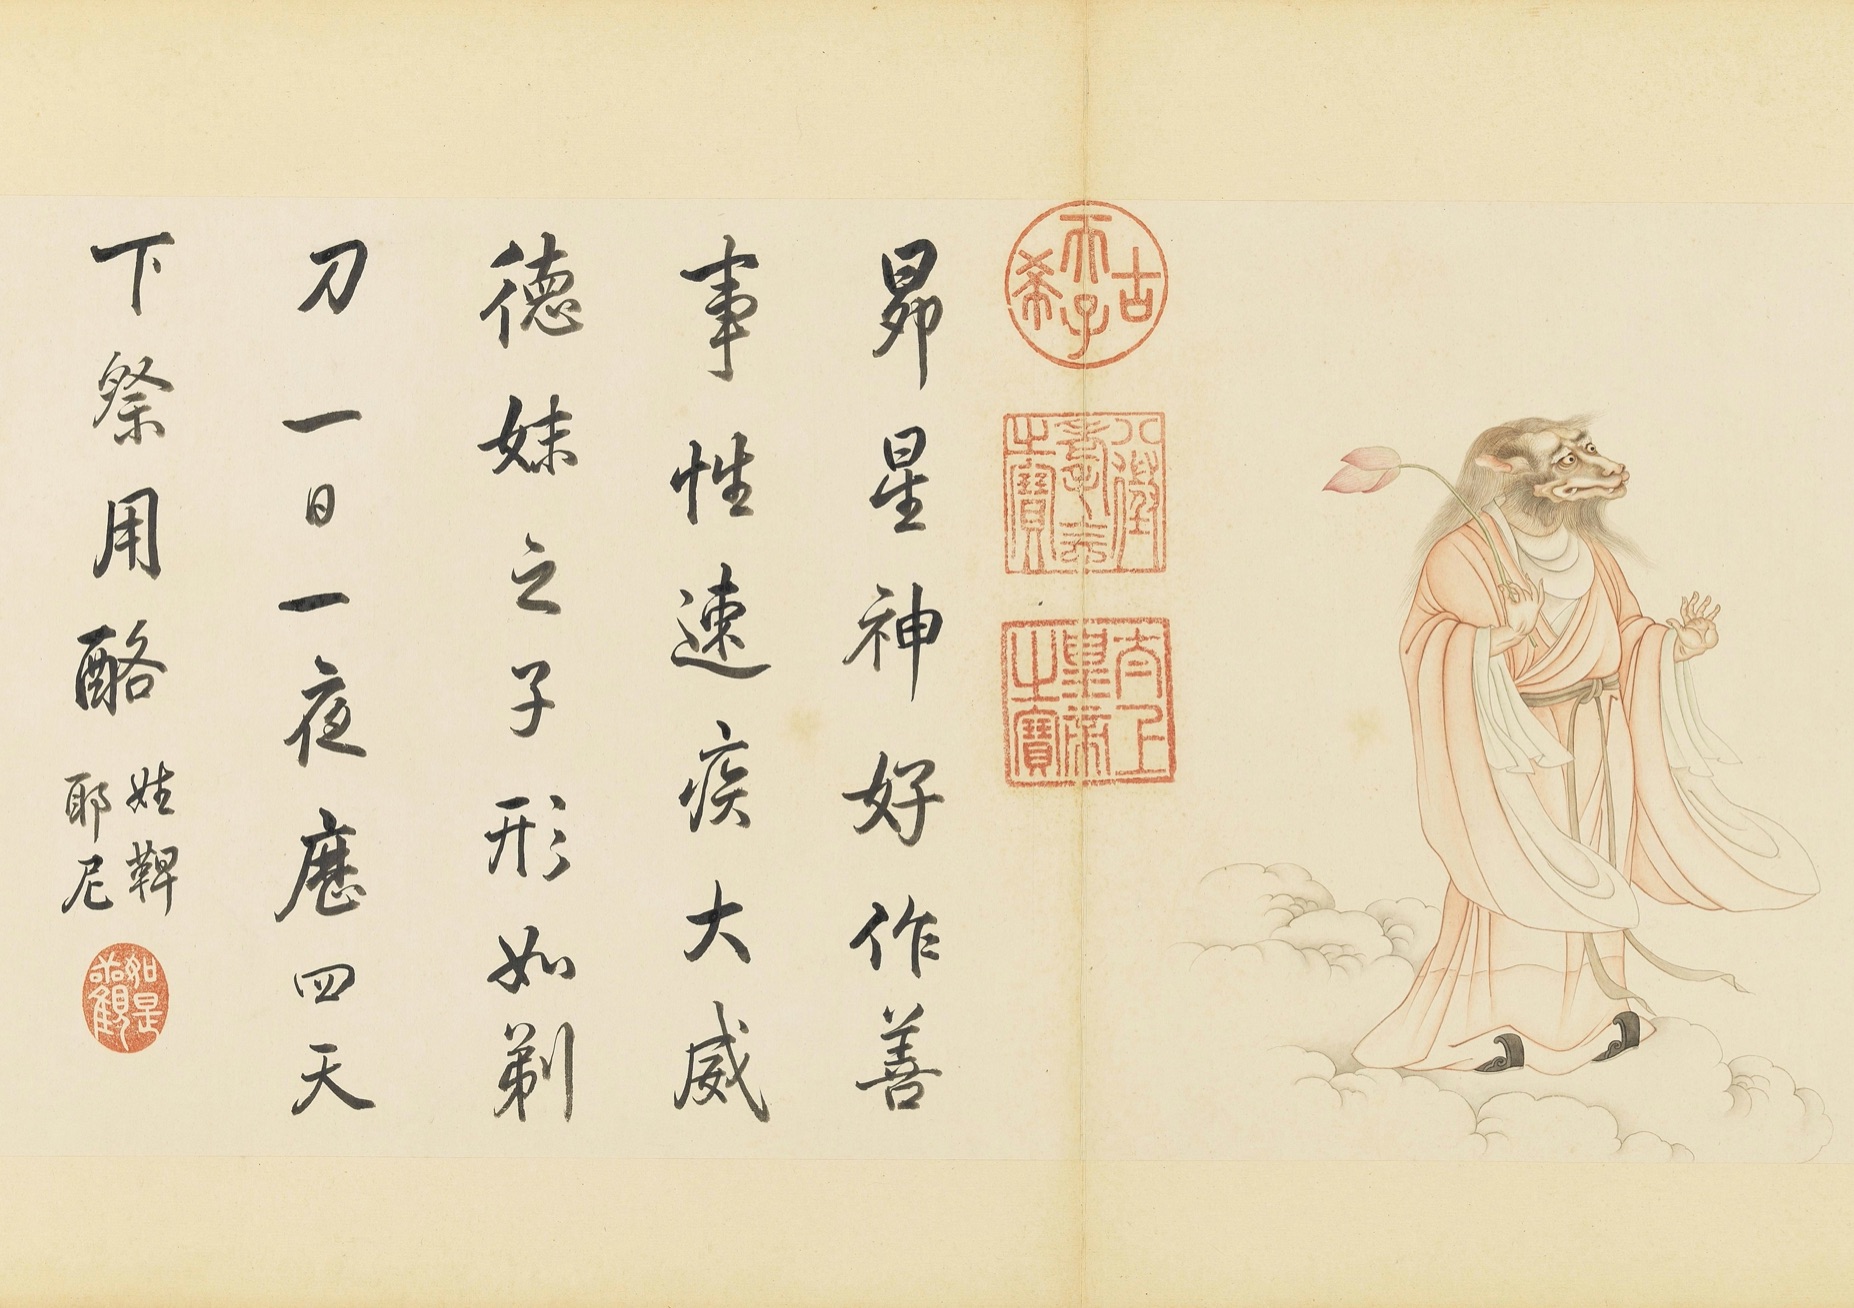 古希天子
八徵耄念之寶
太上皇帝之寶
昴星神好作善
事性速疾大威
德妹之子形如剃
刀一日一夜應四天
下祭用酪
姓鞞
耶尼
如是觀